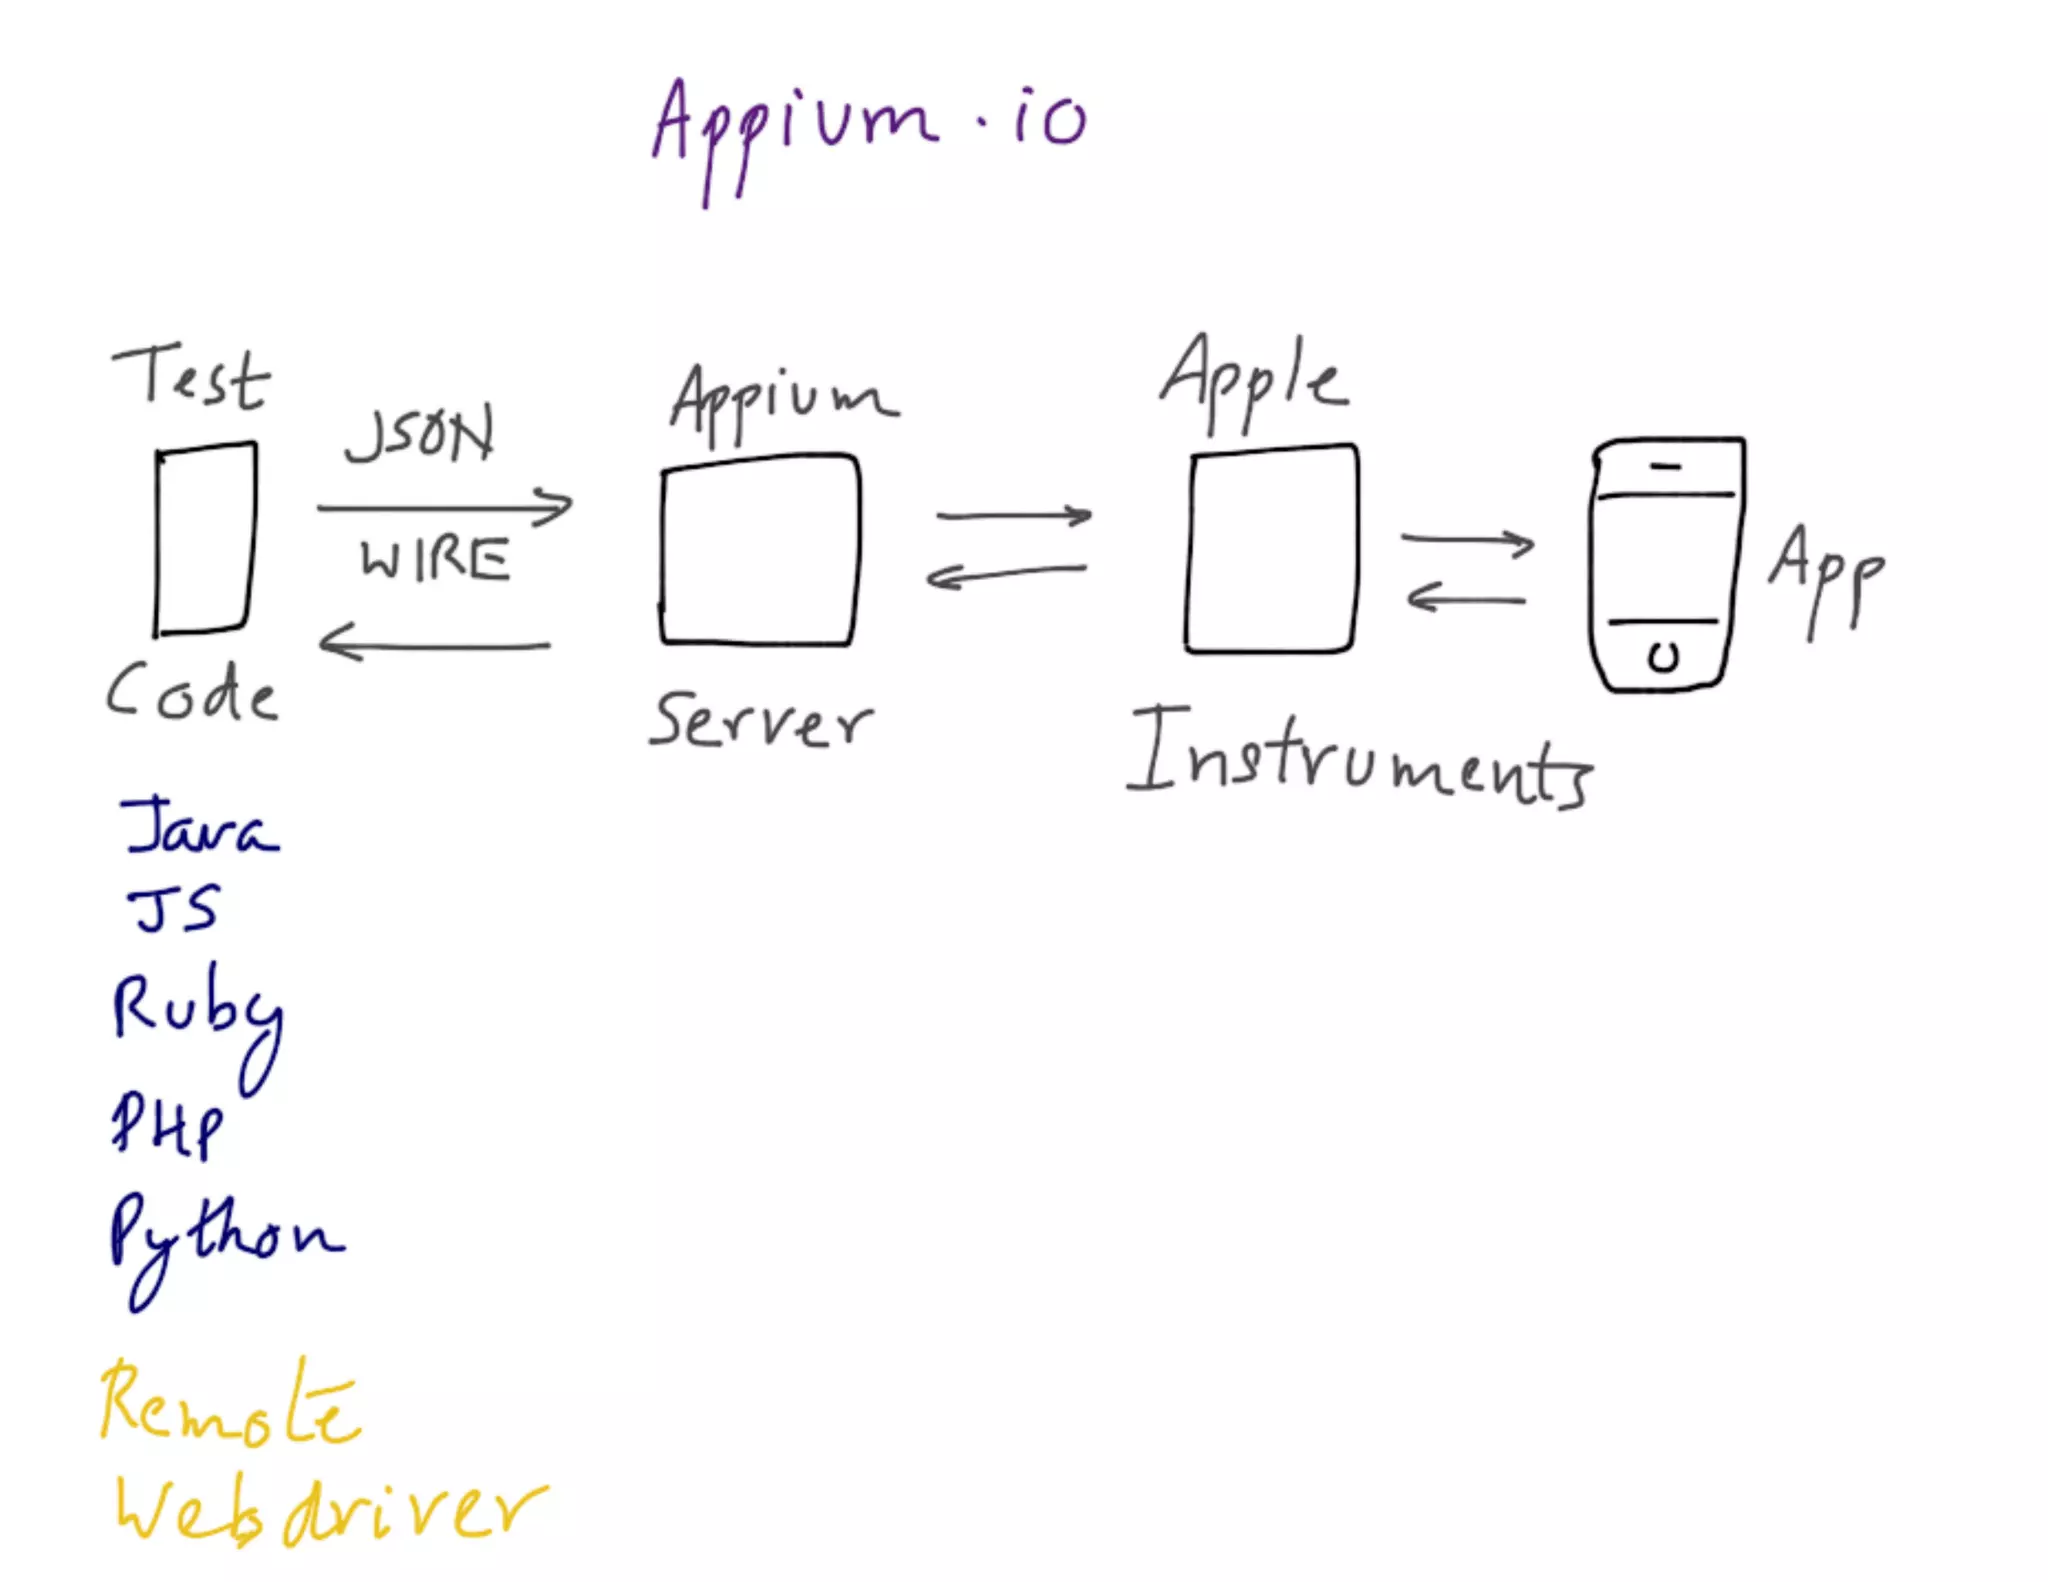 Appium.io
Test
Code
JSON
WIRE
Appium
Server
Apple
Instruments
App
Java
JS
Ruby
PHP
Python
Remote
Webdriver